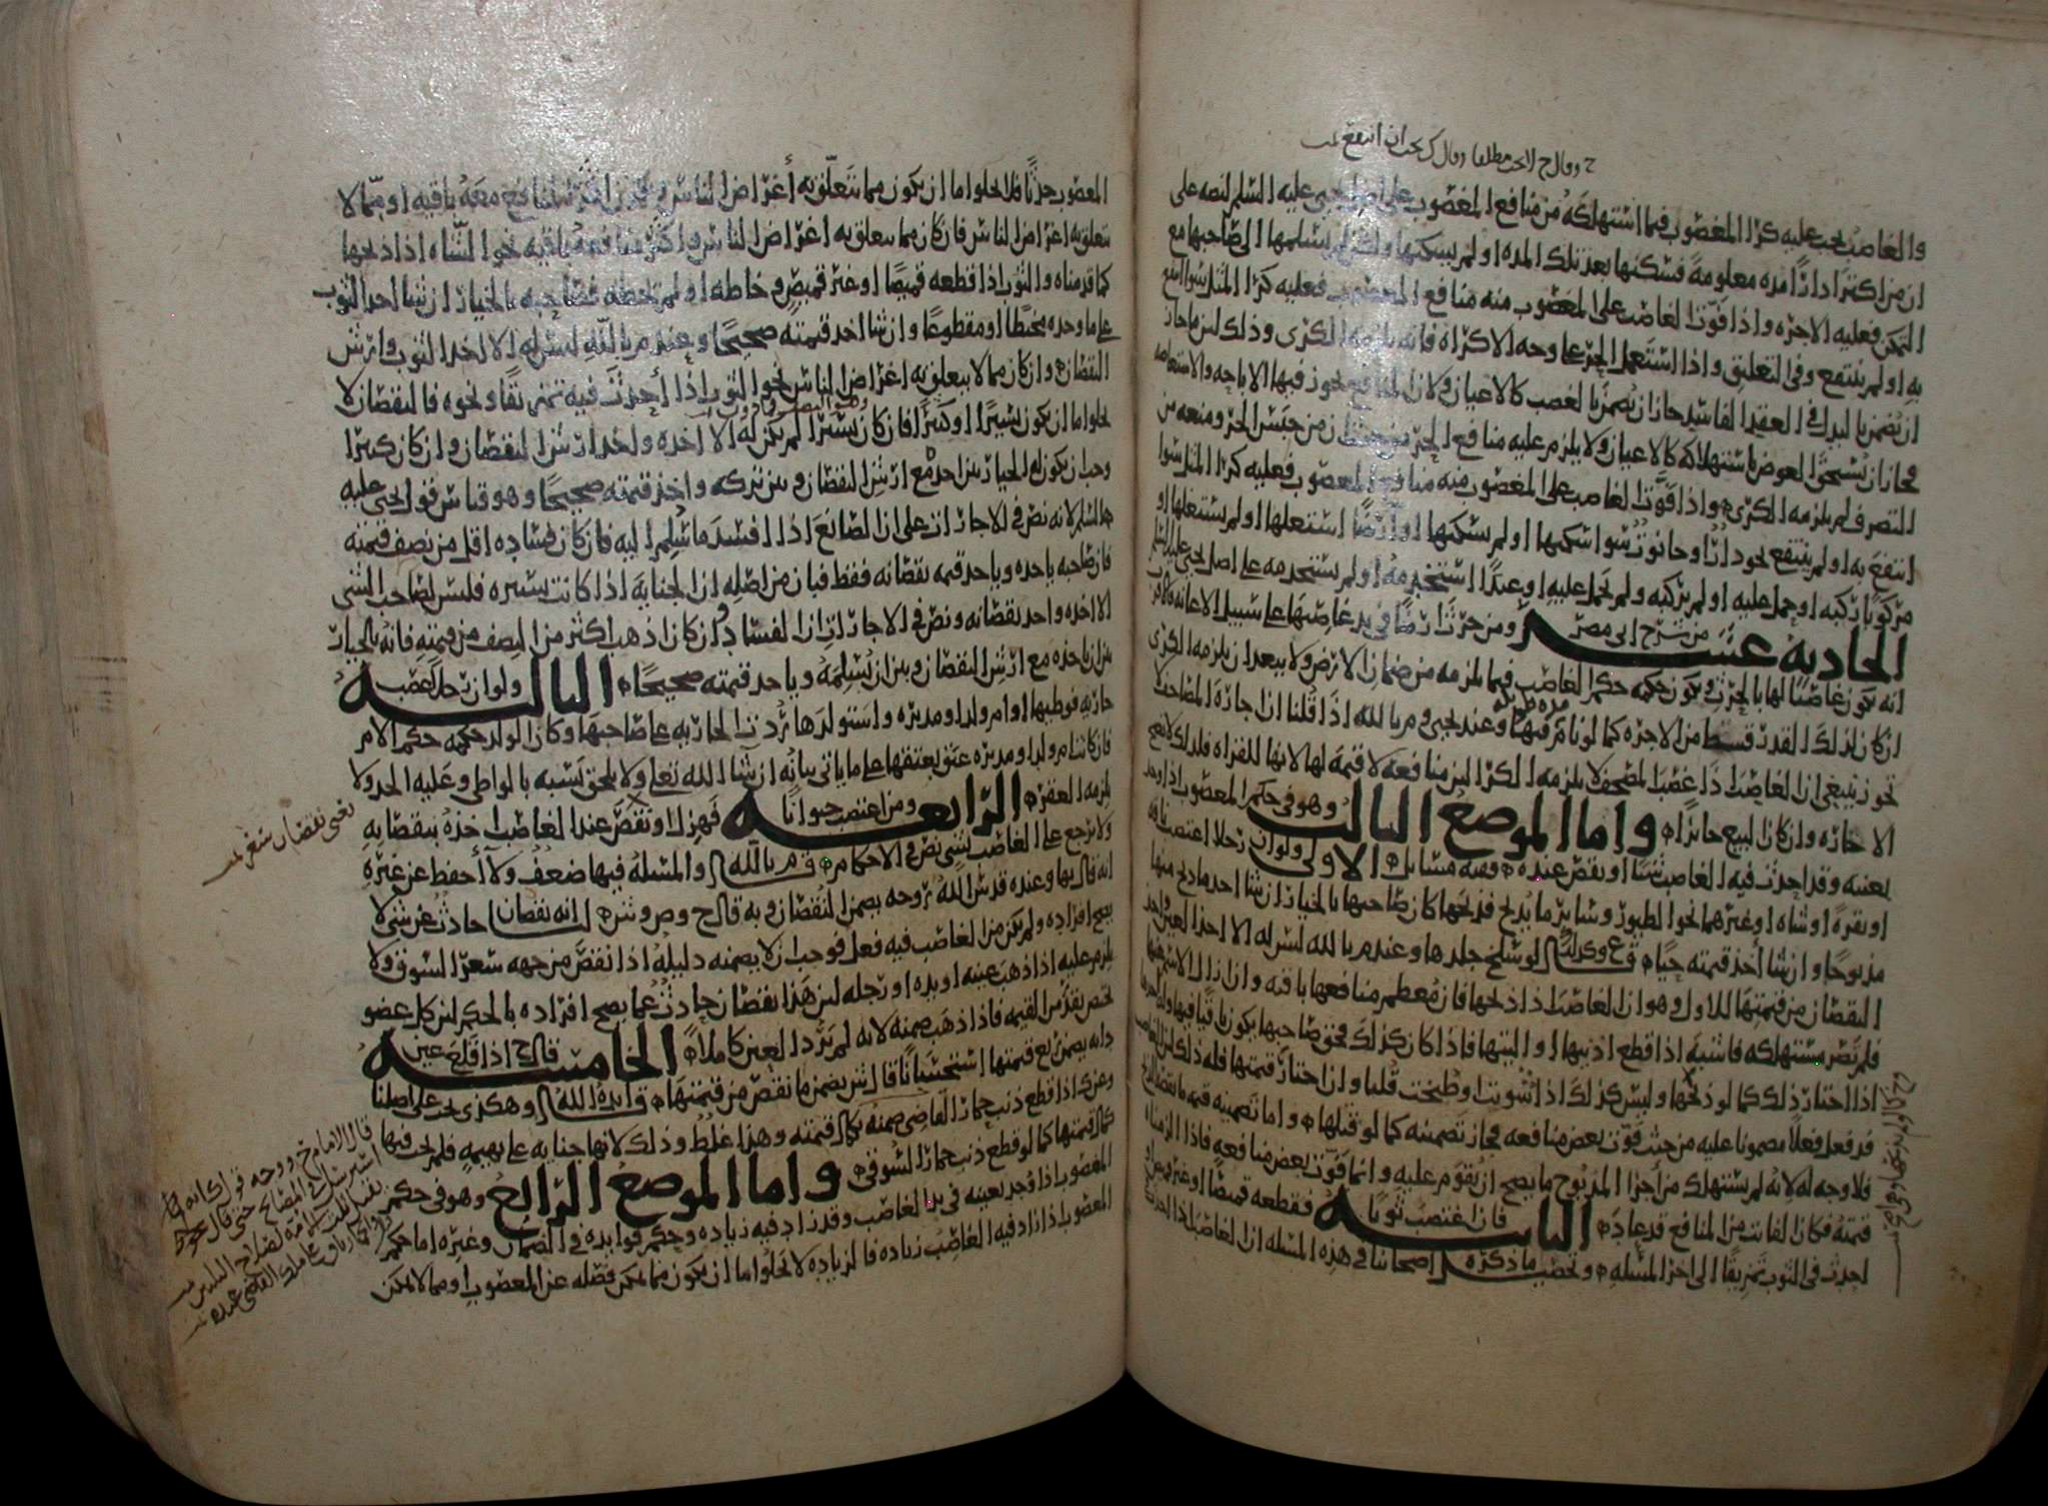 والغاصب يجب عليه كرا المغصوب فيما استهلكه من منافع المغصوب على اصل يحيى عليه السلم لنصه على
ان من اكترا دارًا مده معلومة فسكنها بعد تلك المده او لم يسكنها ولم يسلمها الى صاحبها مع
التمكن فعليه الاجره واذا فوّت الغاصب على المغصوب منه منافع المغصوب فعليه كرا المثل سوا انتفع
به او لم ينتفع وفي التعليق واذا استعمل الحر على وجه الاكراه فانه يلزمه الكرى وذلك لان ما جاز
ان يُضمن بالبدل في العقد الفاسد جاز ان يُضمن بالغصب كالاعيان ولان المنافع يجوز فيها الاباحه والاستعاضه
فجاز ان يُستحق العوض باستهلاكه كالاعيان ولا يلزم عليه منافع الحر من حيث ان من حبس الحر ومنعه من
التصرف لم يلزمه الكرى واذا فوّت الغاصب على المغصوب منه منافع المغصوب فعليه كرا المثل سوا
انتفع به او لم ينتفع نحو دارًا وحانوت سوا سكنها او لم يسكنها او ارضًا استعملها او لم يستعملها او
مركوبًا ركبه او حمل عليه او لم يركبه ولم يحمل عليه او عبدًا استخدمه او لم يستخدمه على اصل يحيى عليه السلم
الحادية عشر من شرح ابي مضر ومن حرث ارضًا في يد غاصبها على سبيل الاعانه
انه يكون غاصبًا لها بالحرث ويكون حكمه حكم الغاصب فيما يلزمه من ضمان الارض ولا يبعد ان يلزمه الكرى
ان كان لذلك القدر قسط من الاجره كما لو نام فيها وعند يحيى وم بالله اذا قُلنا ان اجارة المصاحف لا
تجوز ينبغي ان الغاصب اذا غصب المصحف لا يلزمه الكرا لان منافعه لا قيمة لها لانها للقراه فلذلك لا تصح
الاجاره وان كان البيع جائزًا واما الموضع الثالث وهو في حكم المغصوب اذا وجد
بعينه وقد احدث فيه الغاصب شيئا او نقص عنده ففيه مسائل الاولى ولو ان رجلا اغتصب ناقه
او بقرة او شاه او غيرهما نحو الطيور وسائر ما يُذبح فذبحها كان صاحبها بالخيار ان شا احد ما ذبح منها
مذبوحا وان شا أخذ قيمته حيًا وكذلك لو سلخ جلدها وعند م بالله ليس له الا اخذ العين واخذ
النقصان من قيمتها للاول وهو ان الغاصب اذا ذبحها فان معظم منافعها باقيه وان زال الاسم عنها
فلم تصر مستهلكه فاشبه اذا قطع اذنيها او اليتها فاذا كان كذلك فحق صاحبها يكون باقيا فيها
اذا اختار ذلك كما لو ذبحها وليس كذلك اذا شويت او طبخت قلنا وان اختار قيمتها فله ذلك لان الغاصب
قد فعل فعلًا مضمونا عليه من حيث فوّت بعض منافعه فجاز تضمينه كما لو قتلها واما تضمينه قيمه ما نقصه الذبح
فلا وجه له لانه لم يستهلك من أجزا المذبوح ما يصح ان يُقوم عليه وانما فوّت بعض منافعه فاذا الزمناه
قيمته فكان الفائت من المنافع قد عاد الثانيه فان غصب ثوبًا فقطعه قميصًا او غيره
احدث في الثوب تمزيقًا الى اخر المسله وتحصيل ما ذكره اصحابنا في هذه المسله ان الغاصب اذا احدث في
المغصوب حدثًا فلا يخلوا اما ان يكون مما تتعلق به أغراض الناس باقيه او مما لا
تتعلق به اغراض الناس فان كان مما يتعلق به اغراض الناس واكثر منافعه باقيه نحو الشاه اذا ذبحها
كما قدمناه والثوب اذا قطعه قميصا او غير قميص وخاطه او لم يخطه فصاحبه بالخيار ان شا اخد الثوب
على ما وجده مخيطا او مقطوعا وان شا اخد قيمته صحيحا وعند م بالله ليس له الا اخذ الثوب وارش
النقصان وان كان مما لا يتعلق به اغراض الناس نحو الثوب اذا أحدث فيه تمزيقا ونحوه فالنقصان لا
يخلوا اما ان يكون يسيرا او كثيرا فان كان يسيرا لم يكن له الا اخذه واخذ ارش النقصان وان كان كثيرا
وجب ان يكون له الخيار بين اخذه مع ارش النقصان وبين تركه واخذ قيمته صحيحا وهو قياس قول يحيى عليه
السلم لانه نص في الاجارات على ان الصانع اذا افسد ما سُلم اليه فان كان فساده اقل من نصف قيمته
فان صاحبه ياخذه وياخد قيمه نقصانه فقط فبان من اصله ان الجناية اذا كانت يسيره فليس لصاحب الشي
الا اخذه واخد نقصانه ونص في الاجارات ان الفساد ان كان اذهب اكثر من النصف من قيمته فانه بالخيار
بين ان ياخذه مع ارش النقصان وبين ان يُسلمه وياخد قيمته صحيحا الثالثه ولو ان رجل اغتصب
جاريه فوطيها او ام ولد او مدبره واستولدها رُدت الجاريه على صاحبها وكان الولد حكمه حكم الام
فان كانت ام ولد او مدبره عتق بعتقها على ما ياتي بيانه ان شا الله تعلى ولا يلحق نسبه بالواطي وعليه الحد ولا
يلزمه العقر الرابعه ومن اغتصب حيوانا فهزل او نقص عند الغاصب اخذه بنقصانه
ولا يرجع على الغاصب بشي نص في الاحكام م بالله والمسله فيها ضعف ولا أحفظ عن غيره
انه قال بها وعنده قدس الله روحه يضمن النقصان وبه قال ح وص وش لنا انه نقصان حادث عن شي لا
يصح افراده ولم يكن من الغاصب فيه فعل فوجب ان لا يضمنه دليله اذا نقص من جهه سعر السوق ولا
يلزم عليه اذا ذهب عينه او يده او رجله لان هذا نقصان حادث عما يصح افراده بالحكم لان كل عضو
يختص بقدر من القيمه فاذا ذهب ضمنه لانه لم يرُد العين كاملا الخامسه قال ح اذا قلع عين
دابه يضمن ربع قيمتها استحسانا قال ش يضمن ما نقص من قيمتها ايده الله وهكذى يجب على اصلنا
وعن ك اذا قطع ذنب حمار القاضي ضمنه بكمال قيمته وهذا غلط وذلك لانها جنايه على بهيمه فلم يجب فيها
كمال قيمتها كما لو قطع ذنب حمار السوقي واما الموضع الرابع وهو في حكم
المغصوب اذا وُجد بعينه في يد الغاصب وقد زاد فيه زياده وحكم فوايده في الضمان وغيره اما حكم
المغصوب اذا زاد فيه الغاصب زياده فالزياده لا تخلوا اما ان يكون مما يمكن فصله عن المغصوب او مما لا يمكن
يعني نقصان سعر